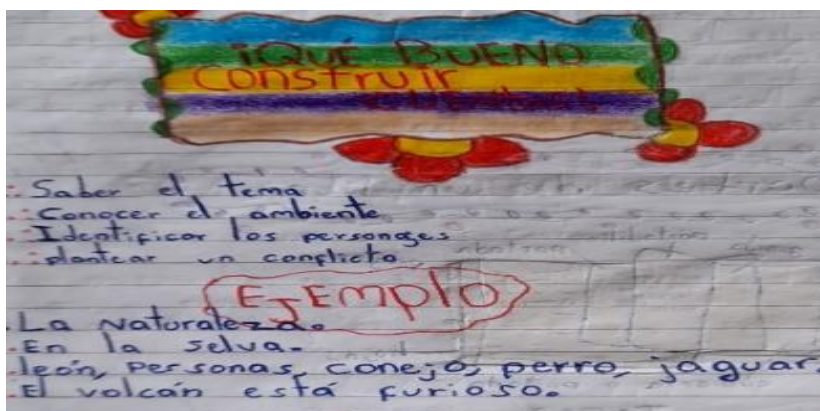 ¡QUÉ BUENO
Construir
Saber el tema
Conocer el ambiente
Identificar los personajes
plantear un conflicto
EJEMPlO
La Naturaleza.
En la selva.
león, personas, conejo, perro, jaguar.
El volcán está furioso.